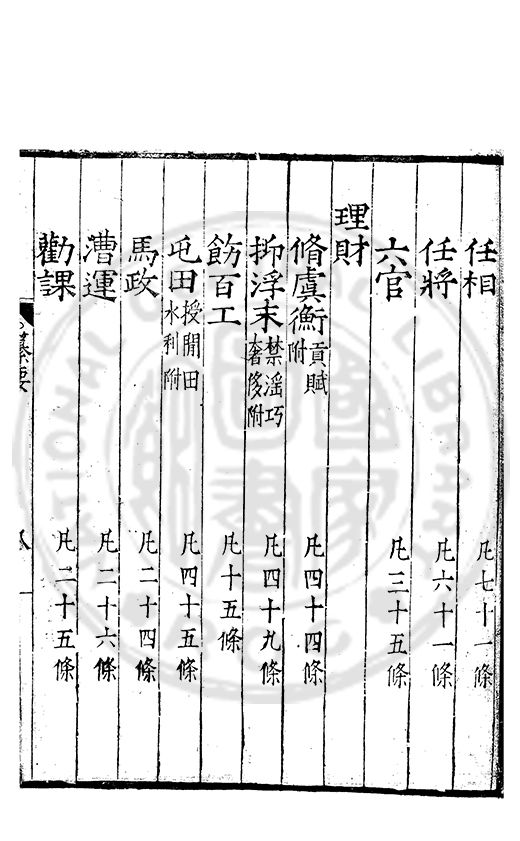 任相 凡七十一條
任將 凡六十一條
六官 凡三十五條
理財
脩虞衡 貢賦附 凡四十四條
抑浮末 禁淫巧奢侈附 凡四十九條
飭百工 凡十五條
屯田 授閒田水利附 凡四十五條
馬政 凡二十四條
漕運 凡二十六條
勸課 凡二十五條